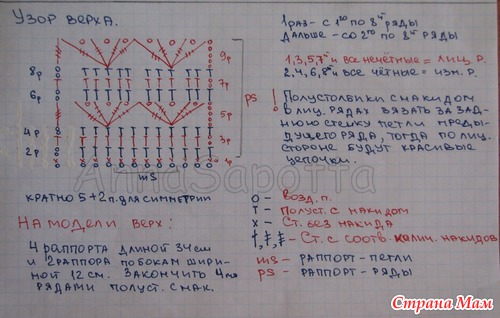 Узор верха.
1 раз - с 1го по 8й ряды
Дальше - со 2го по 8й ряды
1,3,5,7й и все нечётные = лиц. р.
2,4,6,8й и все чётные = изн. р.
! Полустолбики с накидом
в лиц. рядах вязать за зад-
нюю стенку петли преды-
дущего ряда, тогда по лиц.
стороне будут красивые
цепочки.
9р
8р
7р
6р
5р
4р
3р
2р
1р
РS
mS
кратно 5+2п. для симметрии
AnnaSapotta
На модели верх:
4 раппорта длиной 34см
и 2 раппора по бокам шири-
ной 12 см. Закончить 4мя
рядами полуст. с нак.
о - Возд. п.
т - Полуст. с накидом
х - Ст. без накида
Ст. с соотв. колич. накидов
mS - раппорт-петли
РS - раппорт-ряды
Страна Мам